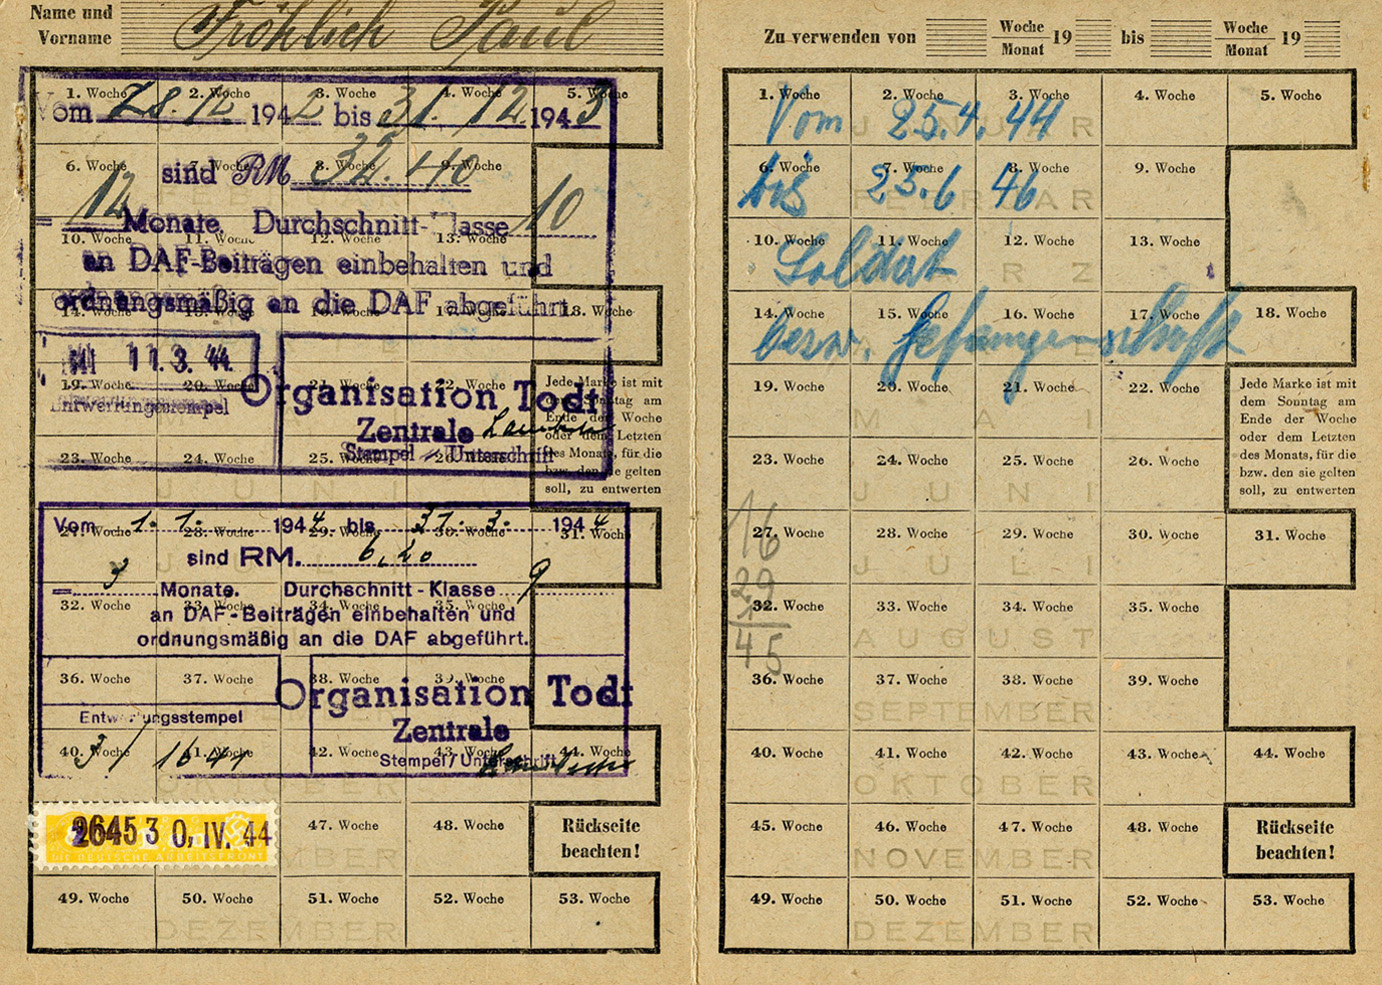 Name und
Vorname Fröhlich Paul
Vom 28. 12. 1942 bis 31. 12. 1943
sind RM 32.40
= 12 Monate. Durchschnitt-Klasse 10
an DAF-Beiträgen einbehalten und
ordnungsmäßig an die DAF abgeführt.
11.3.44
Entwertungsstempel
Organisation Todt
Zentrale
Stempel / Unterschrift
1. Woche 2. Woche 3. Woche 4. Woche 5. Woche
6. Woche 7. Woche 8. Woche 9. Woche
10. Woche 11. Woche 12. Woche 13. Woche
14. Woche 15. Woche 16. Woche 17. Woche 18. Woche
19. Woche 20. Woche 21. Woche 22. Woche
23. Woche 24. Woche 25. Woche 26. Woche
Jede Marke ist mit
dem Sonntag am
Ende der Woche
oder dem Letzten
des Monats, für die
bzw. den sie gelten
soll, zu entwerten
JUNI
Vom 1. 1. 1944 bis 31. 3. 1944
sind RM. 6,20
= 3 Monate. Durchschnitt-Klasse 9
an DAF-Beiträgen einbehalten und
ordnungsmäßig an die DAF abgeführt.
Entwertungsstempel
Organisation Todt
Zentrale
Stempel / Unterschrift
27. Woche 28. Woche 29. Woche 30. Woche 31. Woche
32. Woche 33. Woche 34. Woche 35. Woche
36. Woche 37. Woche 38. Woche 39. Woche
40. Woche 41. Woche 42. Woche 43. Woche 44. Woche
OKTOBER
26453 0. IV. 44
DIE DEUTSCHE ARBEITSFRONT
47. Woche 48. Woche
Rückseite
beachten!
49. Woche 50. Woche 51. Woche 52. Woche 53. Woche
DEZEMBER
Zu verwenden von Woche Monat 19 bis Woche Monat 19
1. Woche 2. Woche 3. Woche 4. Woche 5. Woche
Vom 25.4.44
JANUAR
6. Woche 7. Woche 8. Woche 9. Woche
bis 25.6 46
FEBRUAR
10. Woche 11. Woche 12. Woche 13. Woche
Soldat
MÄRZ
14. Woche 15. Woche 16. Woche 17. Woche 18. Woche
bezw. Gefangenschaft
19. Woche 20. Woche 21. Woche 22. Woche
MAI
23. Woche 24. Woche 25. Woche 26. Woche
JUNI
Jede Marke ist mit
dem Sonntag am
Ende der Woche
oder dem Letzten
des Monats, für die
bzw. den sie gelten
soll, zu entwerten
27. Woche 28. Woche 29. Woche 30. Woche 31. Woche
16
29
45
JULI
32. Woche 33. Woche 34. Woche 35. Woche
AUGUST
36. Woche 37. Woche 38. Woche 39. Woche
SEPTEMBER
40. Woche 41. Woche 42. Woche 43. Woche 44. Woche
OKTOBER
45. Woche 46. Woche 47. Woche 48. Woche
NOVEMBER
Rückseite
beachten!
49. Woche 50. Woche 51. Woche 52. Woche 53. Woche
DEZEMBER